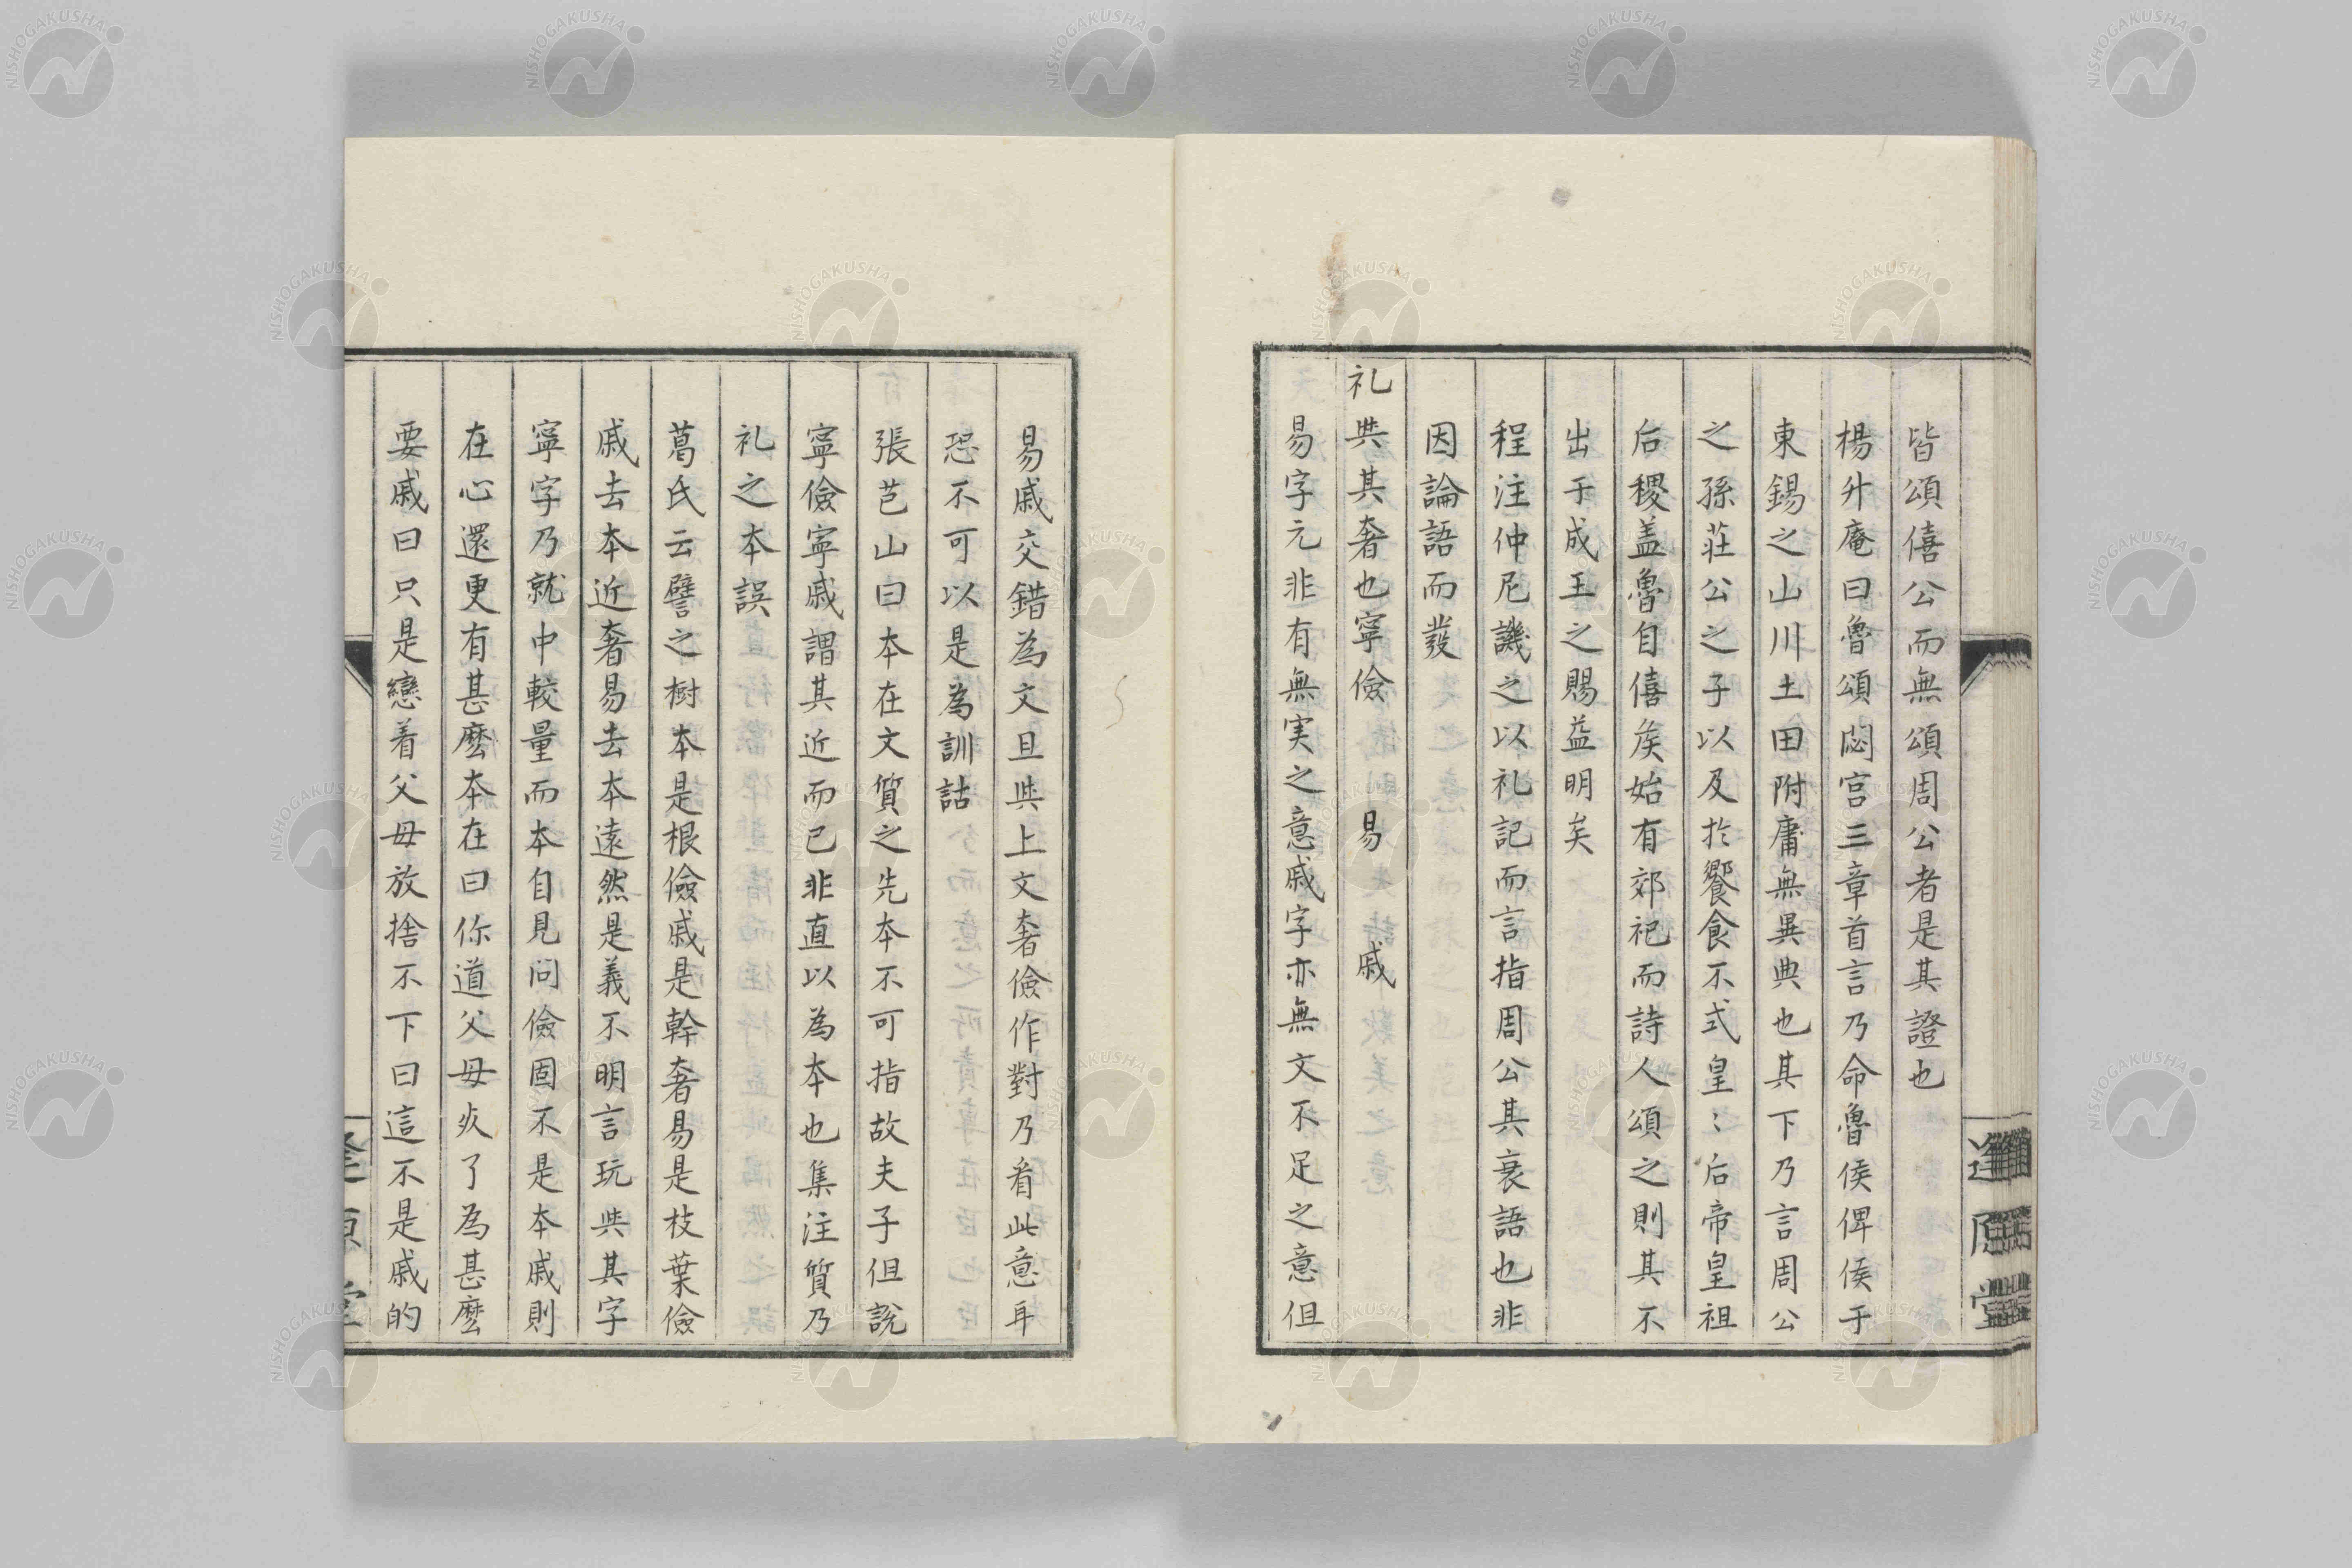 皆頌僖公而無頌周公者是其證也
楊升庵曰魯頌閟宮三章首言乃命魯侯俾侯于
東錫之山川土田附庸無異典也其下乃言周公
之孫莊公之子以及於饗食不忒皇〻后帝皇祖
后稷盖魯自僖矦始有郊祀而詩人頌之則其不
出于成王之賜益明矣
程注仲尼譏之以礼記而言指周公其衰語也非
因論語而發
礼與其奢也寧儉 易 戚
易字元非有無実之意戚字亦無文不足之意但
易戚交錯為文且與上文奢儉作對乃看此意耳
恐不可以是為訓詁
張芑山曰本在文質之先本不可指故夫子但說
寧儉寧戚謂其近而已非直以為本也集注質乃
礼之本誤
葛氏云譬之樹本是根儉戚是幹奢易是枝葉儉
戚去本近奢易去本遠然是義不明言玩與其字
寧字乃就中較量而本自見问儉固不是本戚則
在心還更有甚麼本在曰你道父母死了為甚麼
要戚曰只是戀着父母放捨不下曰這不是戚的
逢原堂
NISHOGAKUSHA